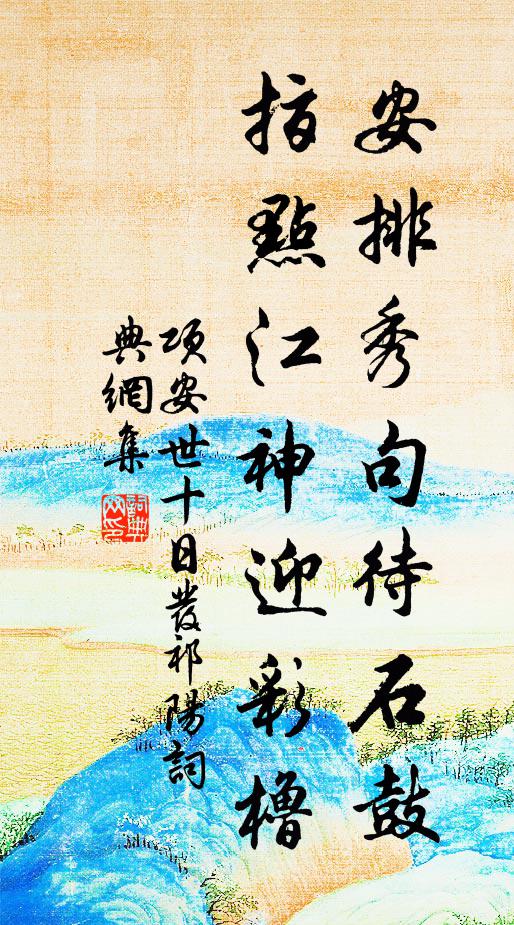 安排秀句待石鼓
指點江神迎彩櫓
項安世十日發祁陽詞
典網集
詞典網印